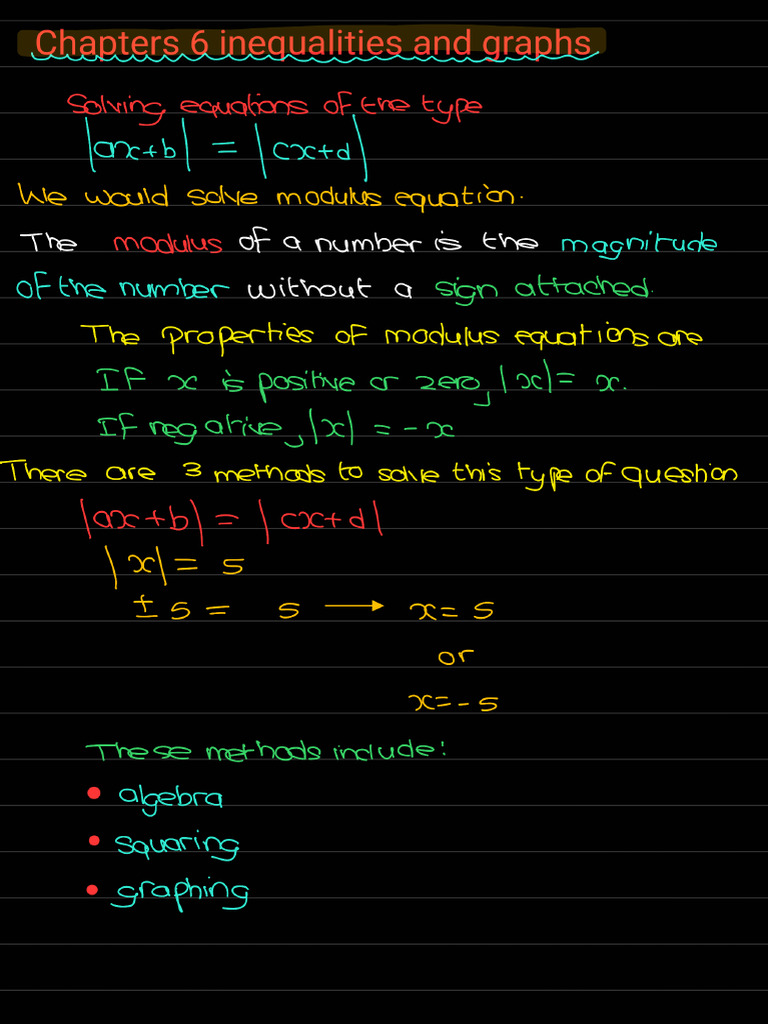 Chapters 6 inequalities and graphs
Solving equations of the type
|ax+b| = |cx+d|
We would solve modulus equation.
The modulus of a number is the magnitude
of the number without a sign attached.
The properties of modulus equations are
If x is positive or zero, |x| = x.
If negative, |x| = -x
There are 3 methods to solve this type of question
|ax+b| = |cx+d|
|x| = 5
± 5 = 5 → x = 5
or
x = -5
These methods include:
• algebra
• squaring
• graphing